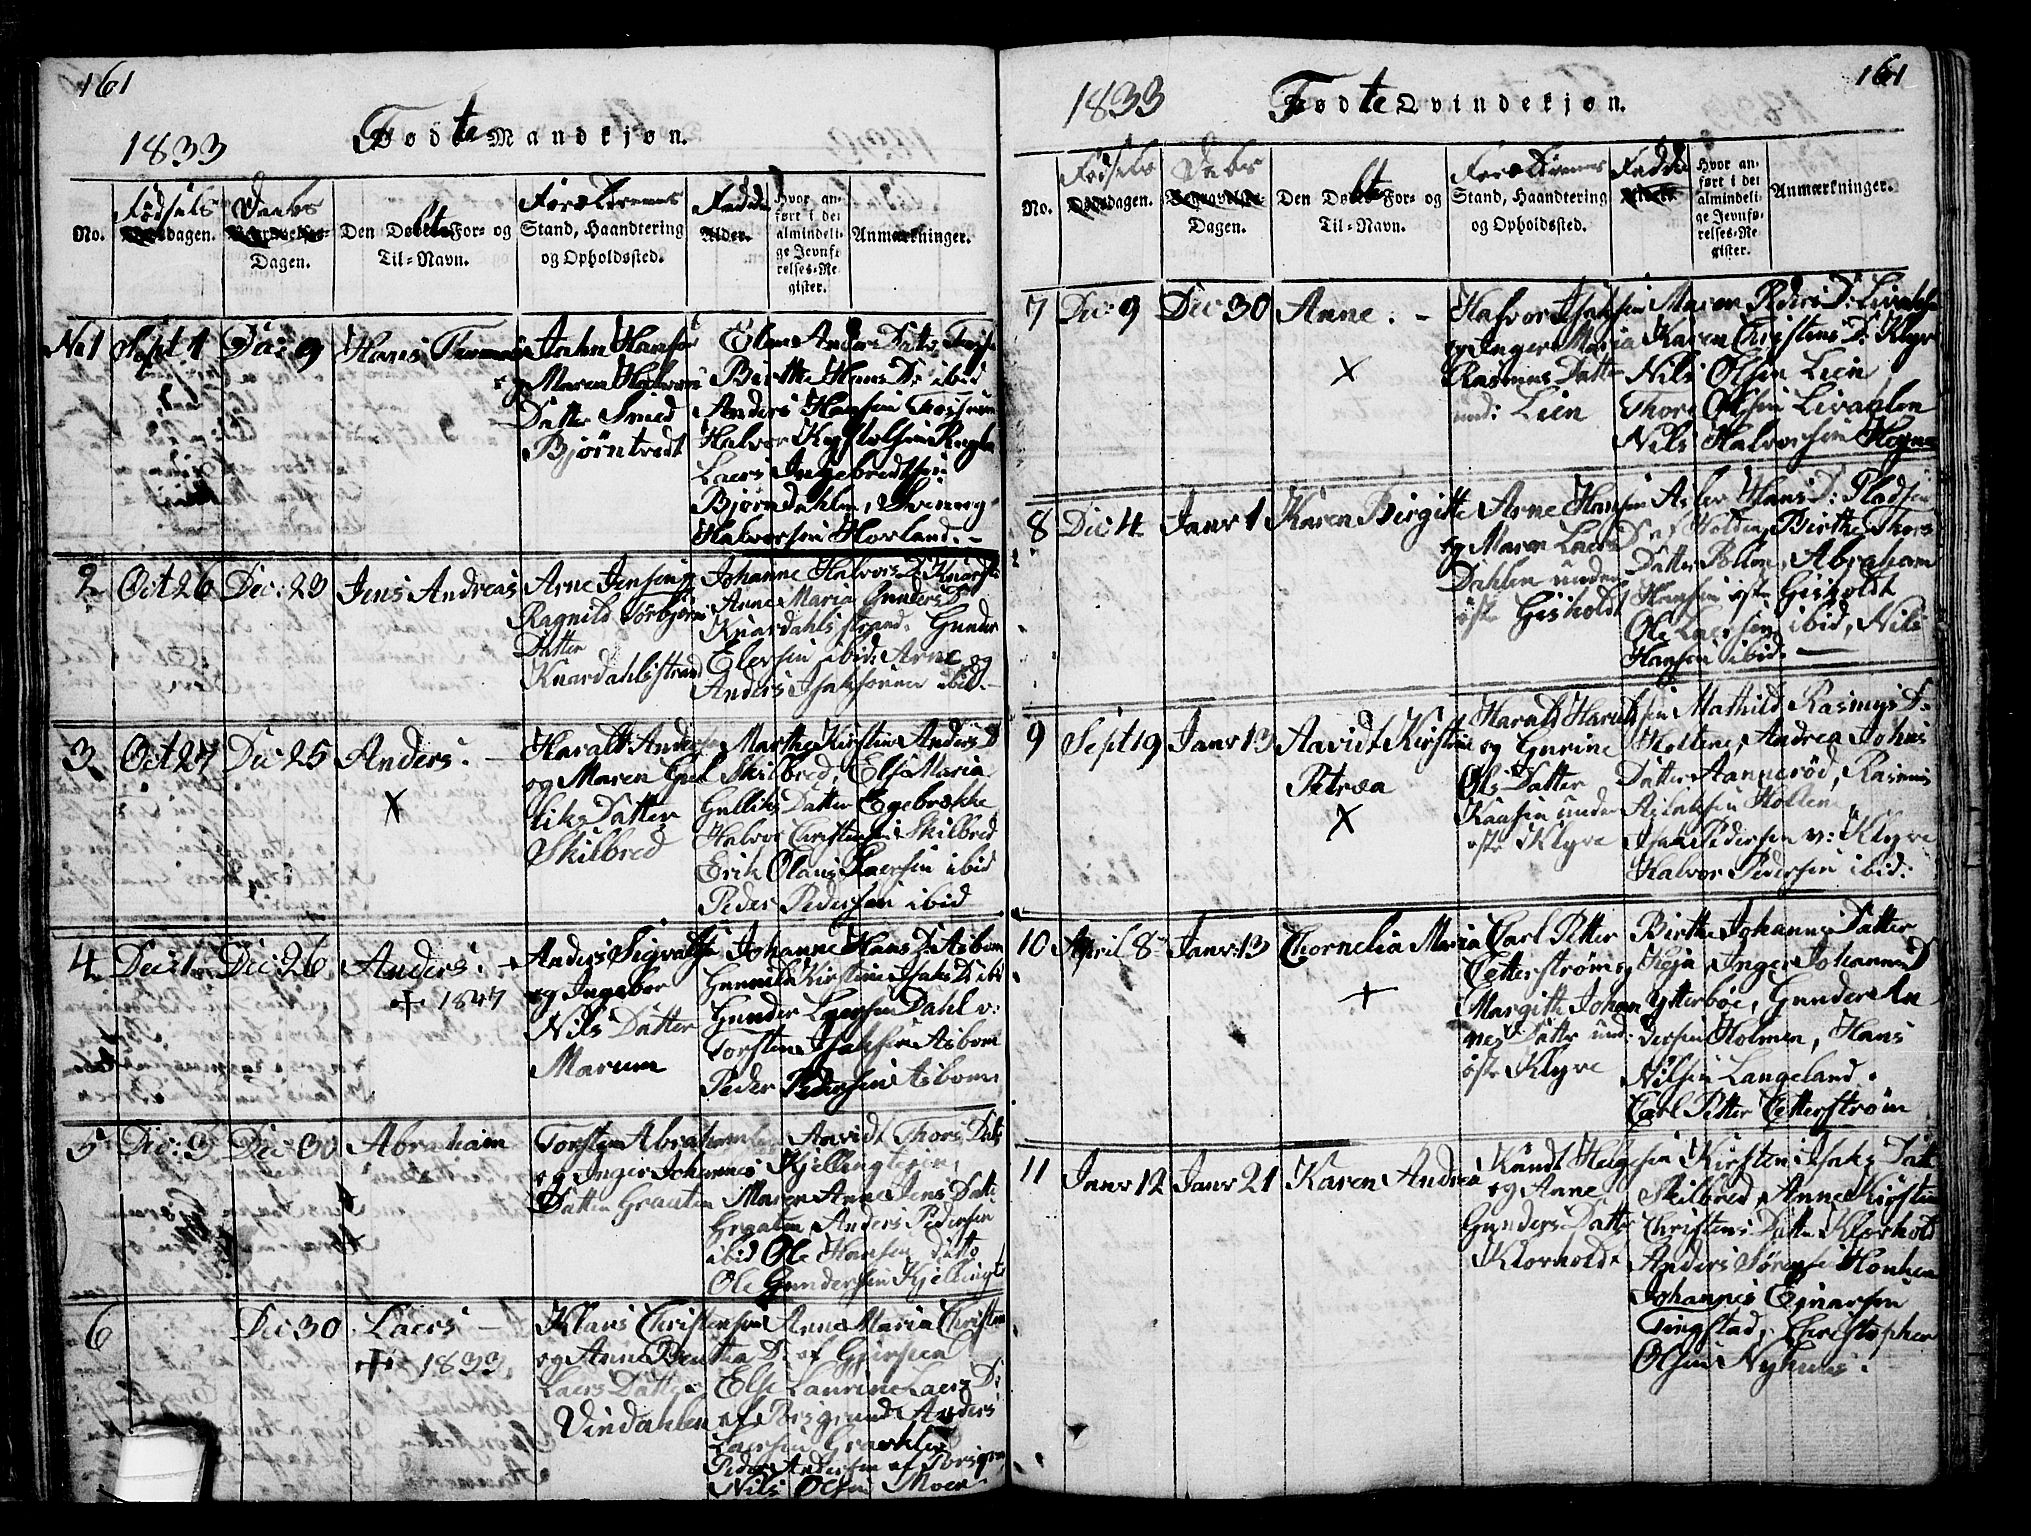 161
Fødte Mandkjøn.
1833
No.
Fødsels dagen.
Daabs Dagen.
Den Døbte For- og Til-Navn.
Forældrenes Stand, Haandtering og Opholdssted.
Fadde
Alder.
Hvor anført i det almindelige Jevnførelses-Register.
Anmærkninger.
No 1 Sept 1 Dec 9 Hans
John Hansen
og
Maren Halvors
Datter Smed
Bjørntvedt
Birthe Hans D: ibid
Anders Hansen Fossum
Halvor
Laers Ingebredtsen
Bjørndahlen,
Halvorsen Horland. -
2 Oct 26 Dec: 23 Jens Andreas
Arne Jensen
Ragnild Torbjørn
Datter
Knardahlsstrand
Johanne Halvors D:
Anne Maria Gunders D
Knardahlsstrand. Gunder
Elersen ibid: Arne og
Anders Isaksønner ibid. -
3 Oct 27 Dec: 25 Anders. -
X
Haralt Anders
og Maren Gul
liks Datter
Skilbred
Marthe Kirstine Anders D
Skilbred, Else Maria
Gulliks Datter Egebrække
Halvor Christensen Skilbred
Erik Olaus Laersen ibid
Peder Pedersen ibid
4 Dec: 1 Dec: 26 Anders. -
+ 1847
Anders Sigvalsen
og Ingebor
Nils Datter
Marum
Johanne Hans D: Asbom
Gunnild Kirstine Isaks D: ibi
Gunder Laersen Dahl v:
Torsten Isaksen Asbom
Peder Pedersen Asbom
5 Dec: 3 Dec 30 Abraham
Torsten Abrahamsen
og Inger Johannes
Datter Graaten
Anvidt Thors Datt
Maren Anne Jens Datt
Graaten Anders Pedersen
ibid Ole Hansen ditto
Ole Gundersen
6 Dec: 30 Laers -
+ 1833
Klaus Christensen
og Anne Berthea
Laers Datter
Vindahlen
Anne Maria Christen
D: af Gjersen
Else Laurine Laers D:
af Porsgrund Anders
Laersen
Peder Andersen af Porsgrun
Nils Olsen Moen.
161
1833
Fødte Qvindekjøn.
No.
Fødsels dagen.
Daabs Dagen.
Den Døbte For- og Til-Navn.
Forældrenes Stand, Haandtering og Opholdssted.
Fadde
Hvor anført i det almindelige Jevnførelses-Register.
Anmærkninger.
7 Dec: 9 Dec 30 Anne. -
X
Halvor Isaksen
og Inger Maria
Rasmus Datter
und: Lien
Maren Peders D: Livahlen
Karen Christens D: Klyv
Nils Olsen Lien
Thor Olsen Livahlen
Nils Halvorsen
8 Dec 4 Janr 1 Karen Birgitte
Arne Hansen
og Maren Laers D
Dahlen under
øste Gisholdt
Aslev Hans D: Pladsen
af Holden, Birthe Thors
Datter Bollen, Abraham
Hansen øste Gisholdt
Ole Laersen ibid, Nils
Hansen ibid. -
9 Sept 19 Janr 13 Aavidt Kirstine
Petræa
X
Harald Haraldsen
og Gurine
Ols Datter
Kaasen under
øste Klyve
Mathild Rasmus D:
Holtene, Andrea Johns
Datter Aannerød, Rasmus
Aslaksen Holtene
Isak Pedersen v: Klyve
Halvor Pedersen ibid:
10 April 8 Janr: 13 Chornelia Maria
+
Carl Petter
Cetterstrøm og
Margith Johan
nes Datter und:
øste Klyve
Birthe Johannes Datter
Inger Johannes D
Ytterbøe, Gunder An
dersen Holmen, Hans
Nilsen Langeland.
Carl Petter Cetterstrøm
11 Janr 12 Janr 21 Karen Andrea
Knudt Helgesen
og Anne
Gunders Datter
Klorholdt
Kirsten Isaks Datt
Skilbred, Anne Kirstine
Christens Datter Klorholdt
Anders Sørensen
Johannes Ejnarsen
Tingstad, Christopher
Olsen Nyhuus.